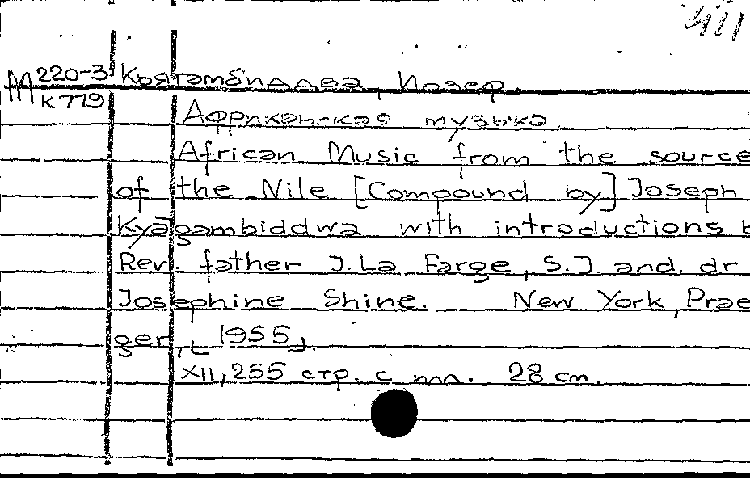 411
М 220-3 Кязгамбиддва, Иозеф.
К 779
Африканская музыка
African Music from the source
of the Nile [Compound by] Joseph
Kyagambiddwa with introductions b
Rev. father J. La Farge, S.J and dr
Josephine Shine. New York, Prae
ger, [1955]
XII, 255 стр. с ил. 28 cm.